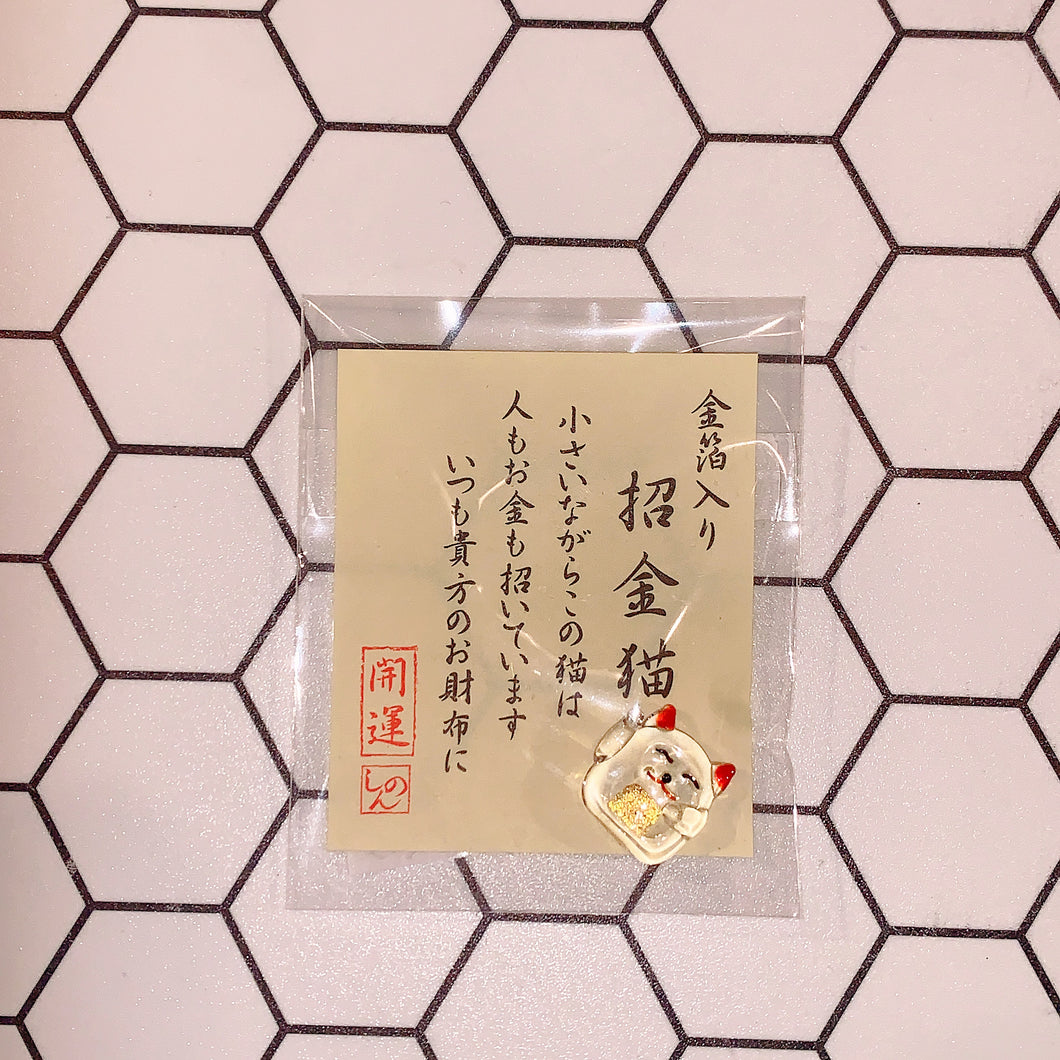 金箔入り
招金猫
小さいながらこの猫は
人もお金も招いています
いつも貴方のお財布に
開運
のん
し